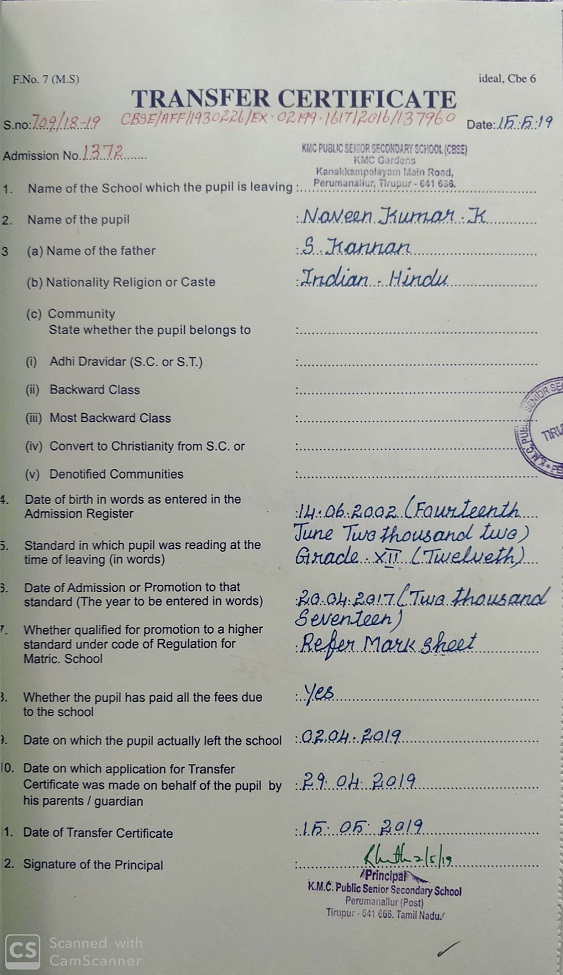 F.No. 7 (M.S)
ideal, Cbe 6
TRANSFER CERTIFICATE
S.no: 709/18-19 CBSE/AFF/1930226/EX-02199-1617/2016/137960 Date: 15.5.19
Admission No. 1372
KMC PUBLIC SENIOR SECONDARY SCHOOL (CBSE)
KMC Gardens
Kanakkampalayam Main Road,
Perumanallur, Tirupur - 641 666.
1. Name of the School which the pupil is leaving :
2. Name of the pupil : Naveen Kumar. K
3 (a) Name of the father : S. Kannan
(b) Nationality Religion or Caste : Indian - Hindu
(c) Community
State whether the pupil belongs to :
(i) Adhi Dravidar (S.C. or S.T.) :
(ii) Backward Class :
(iii) Most Backward Class :
(iv) Convert to Christianity from S.C. or :
(v) Denotified Communities :
4. Date of birth in words as entered in the
Admission Register : 14.06.2002 (Fourteenth
June Two thousand two)
5. Standard in which pupil was reading at the
time of leaving (in words) Grade - XII (Twelveth)
6. Date of Admission or Promotion to that
standard (The year to be entered in words) : 20.04.2017 (Two thousand
Seventeen)
7. Whether qualified for promotion to a higher
standard under code of Regulation for : Refer Mark sheet
Matric. School
8. Whether the pupil has paid all the fees due : Yes
to the school
9. Date on which the pupil actually left the school : 02.04.2019
10. Date on which application for Transfer
Certificate was made on behalf of the pupil by : 29.04.2019
his parents / guardian
1. Date of Transfer Certificate : 15.05.2019
2. Signature of the Principal : 2/5/19
Principal
K.M.C. Public Senior Secondary School
Perumanallur (Post)
Tirupur - 641 666. Tamil Nadu.
CS Scanned with
CamScanner